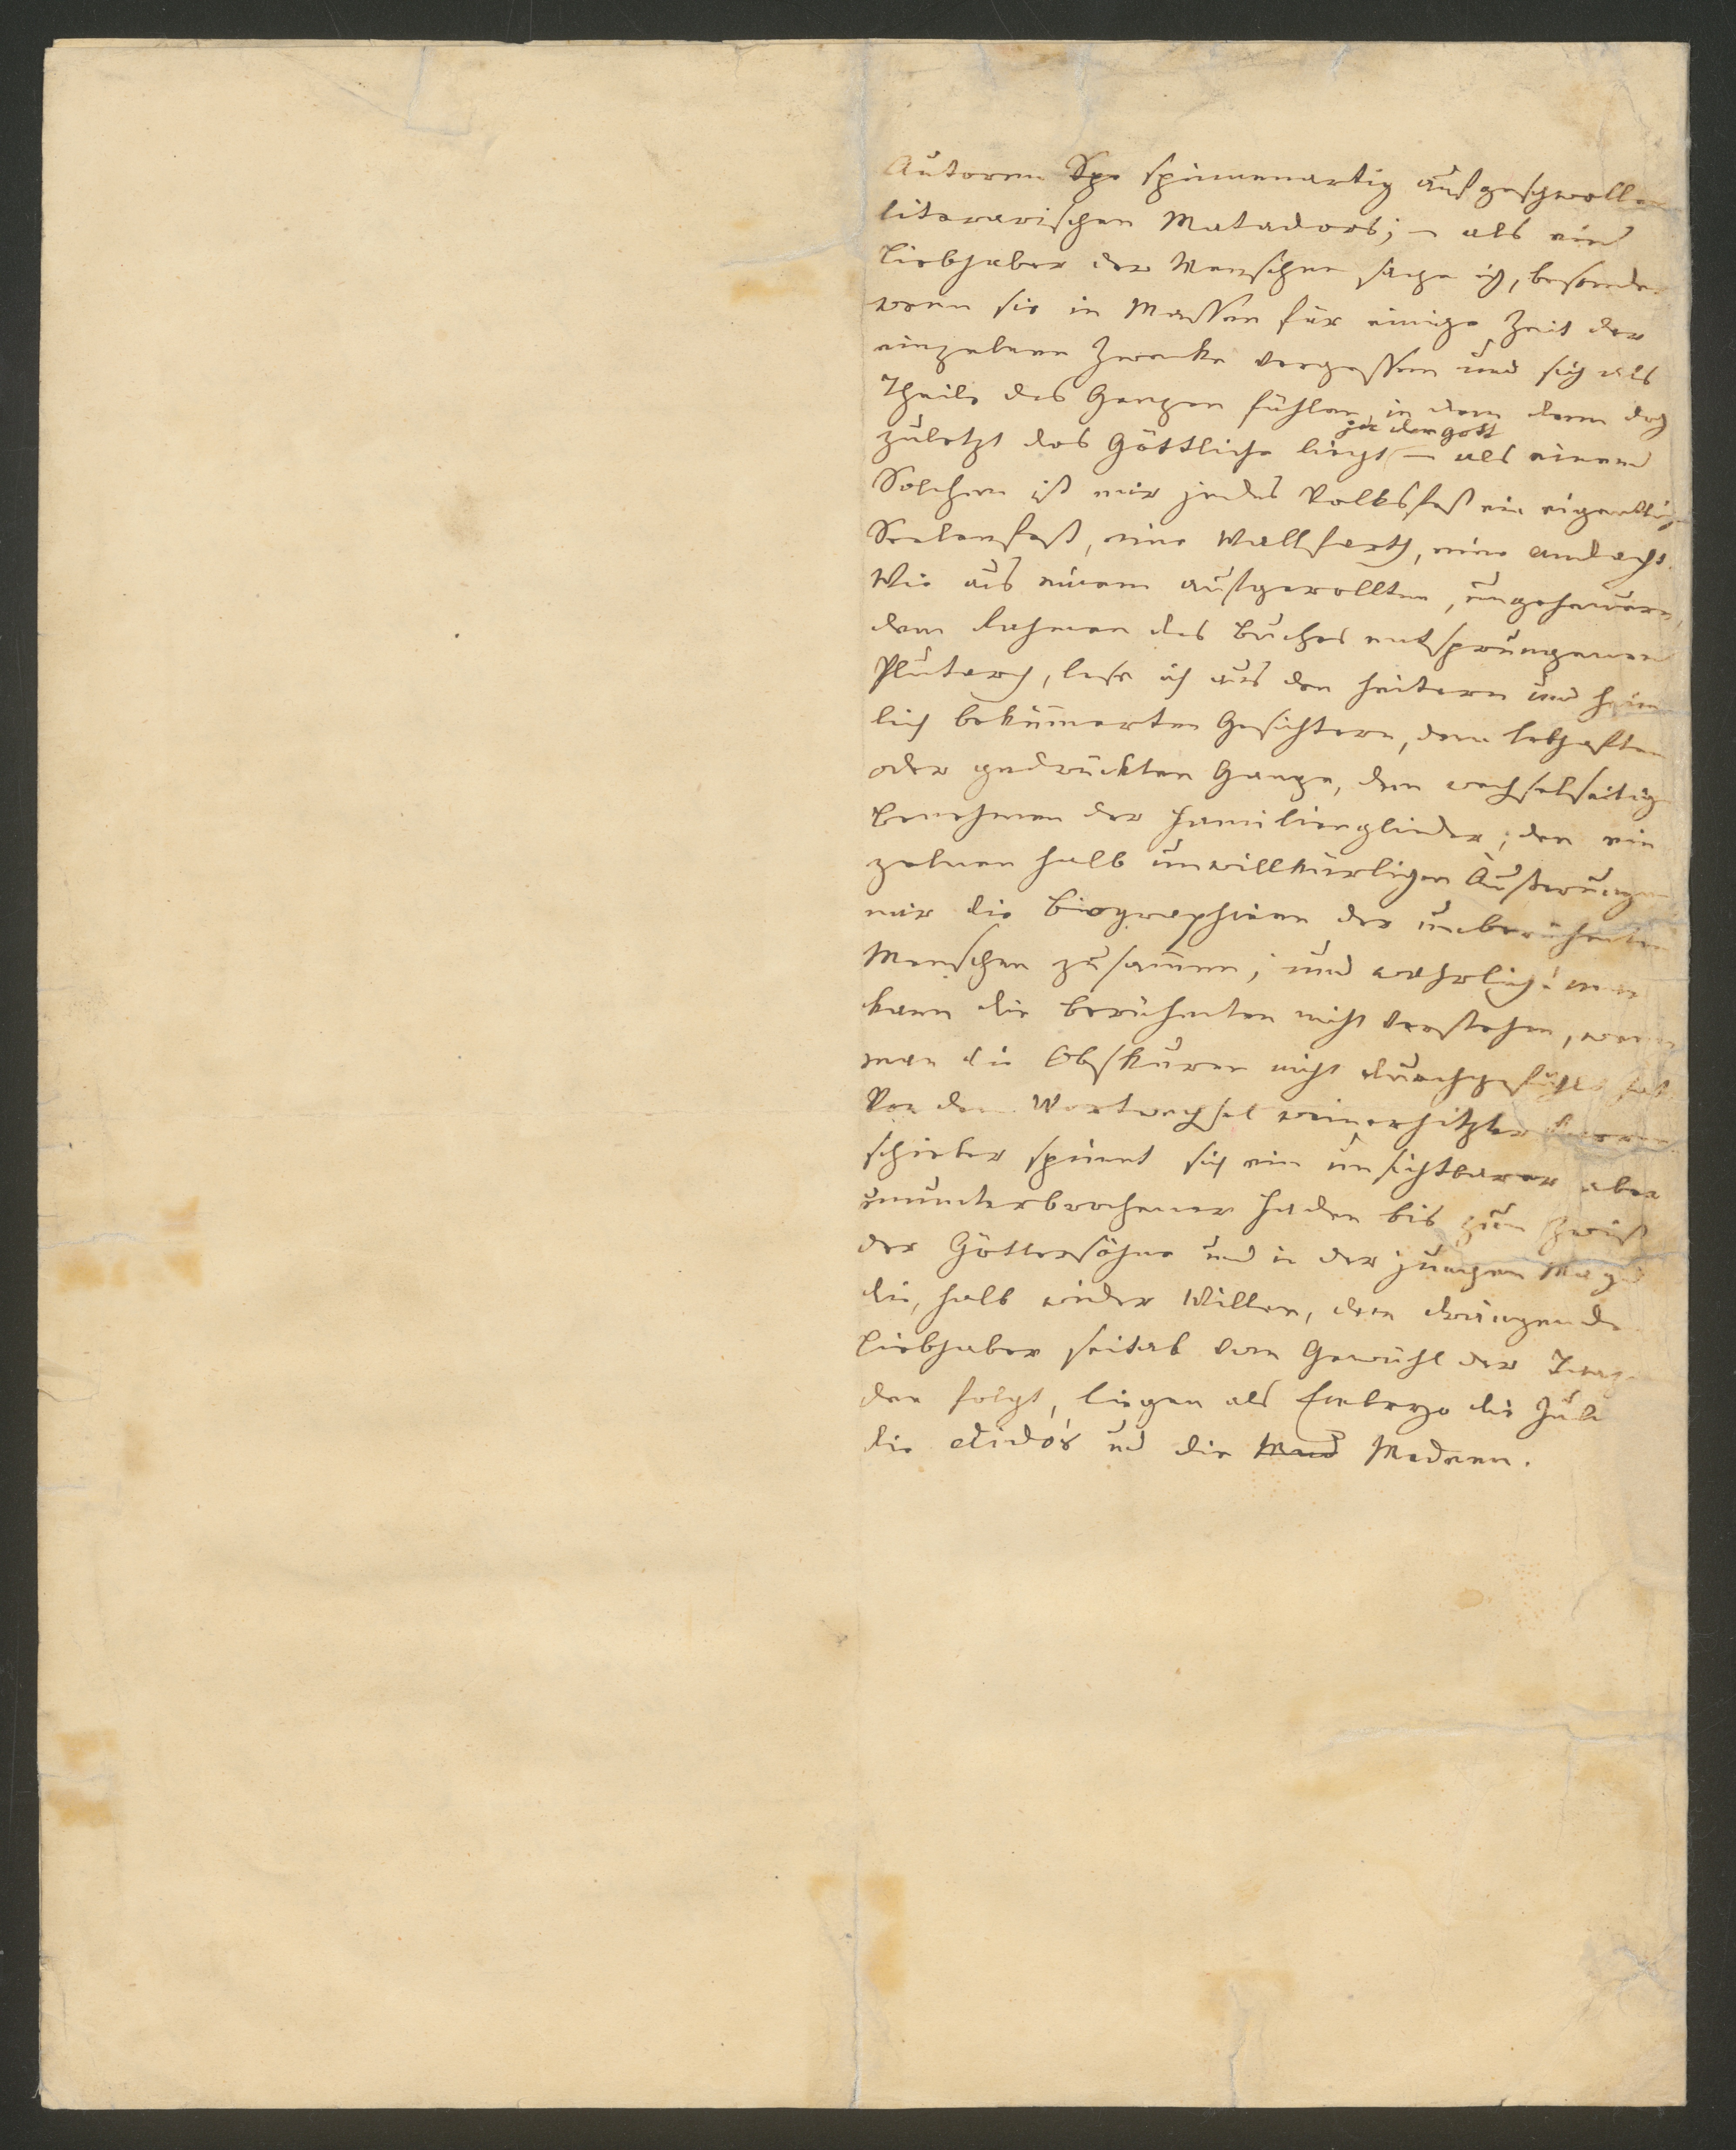 Autoren Spe spinnenartig aufgeschwollen
literarischen Matadors; – als ein
Liebhaber der Menschen sage ich, besonder
wenn sie in Massen für einige Zeit der
einzelnen Zwecke vergessen und sich als
Theile des Ganzen fühlen, in dem denn doch
zuletzt das Göttliche liegt – als einem
ja der Gott
Solchen ist mir jedes Volksfest ein eigentlich
Seelenfest, eine Wallfarth, eine Andacht.
Wie aus einem aufgerollten, ungeheuren,
dem Rahmen des Buches entsprungenen
Plutarch, lese ich aus den heitern und heim
lich bekümerten Gesichtern, dem lebhaften
oder gedrückten Gange, dem wechselseitig
Benehmen der Familienglieder, den ein
zelnen halb unwillkürlichen Äußerungen
mir die Biographieen der unberühmten
Menschen zusamen; und wahrlich! man
kann die Berühmten nicht verstehen, wenn
man die Obskuren nicht durchgefühlt hat
Von dem Wortwechsel weinerhitzter Karren
schieber spinnt sich ein unsichtbarer aber
ununterbrochener Faden bis zum Zwist
der Göttersöhne und in der jungen Magd
die, halb wider Willen, dem drängende
Liebhaber seitab vom Gewühl der Tanz
den folgt, liegen als Embryo die Juli
die Dido's und die Med Medeen.